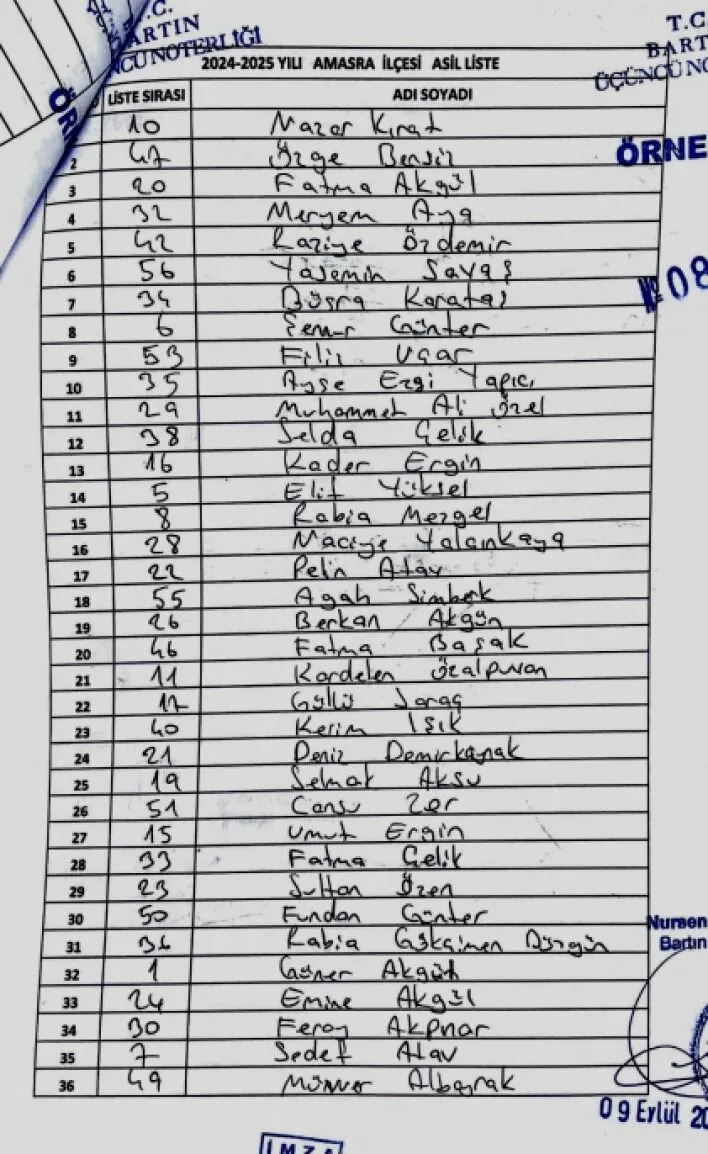 T.C.
BARTIN
ÜÇÜNCÜ NOTERLİĞİ
T.C
BART
ÜÇÜNCÜ NO
2024-2025 YILI AMASRA İLÇESİ ASİL LİSTE
LİSTE SIRASI ADI SOYADI
ÖRN
ÖRNE
10 Nazar Kırat
2 47 Özge Bensiz
3 20 Fatma Akgül
4 32 Meryem Aya
5 42 Raziye Özdemir
6 56 Yasemin Savaş
№ 08
7 34 Büşra Karataş
8 6 Şennur Günter
9 53 Filiz Uçar
10 35 Ayşe Ezgi Yapıcı
11 29 Muhammet Ali Özel
12 38 Selda Çelik
13 16 Kader Ergin
14 5 Elif Yüksel
15 8 Rabia Mezgel
16 28 Naciye Yalankaya
17 22 Pelin Atav
18 55 Agah Simberk
19 26 Berkan Akgün
20 46 Fatma Başak
21 11 Kardelen Özalpuvan
22 17 Güllü Saraç
23 40 Kerim Işık
24 21 Deniz Demirkaynak
25 19 Selmak Aksu
26 51 Cansu Zer
27 15 Umut Ergin
28 33 Fatma Çelik
29 23 Sultan Özen
30 50 Fundan Günter
Nursen
Bartın
31 36 Rabia Gökçimen Düzgün
32 1 Güner Akgün
33 24 Emine Akgül
34 30 Feray Akpınar
35 7 Sedef Atav
36 49 Münver Albayrak
09 Eylül 20
İMZA